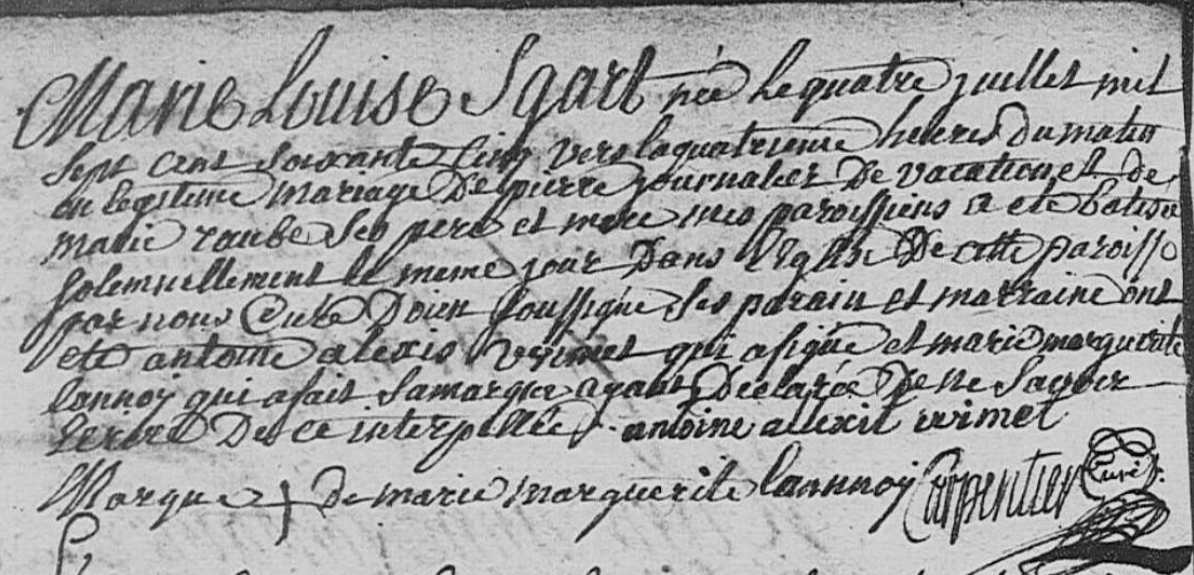 Marie Louise Sgart née Le quatre juillet mil
sept cent soixante Cinq vers la quatrieme heures Du matin
en legitime mariage De pierre journalier De vacation et de
marie raube Ses pere et mere mes paroissiens a eté batisée
solemnellement le meme jour Dans l'Eglise De cette paroisse
par nous Curé Doien soussigné Ses parain et marraine ont
eté antoine alexis vrimet qui a signé et marie marguerite
lannoy qui a fait sa marque ayant Declarée De ne savoir
Ecrire De ce interpellée antoine allexit vrimet
Marque de marie marguerite lannnoy Carpentier Curé